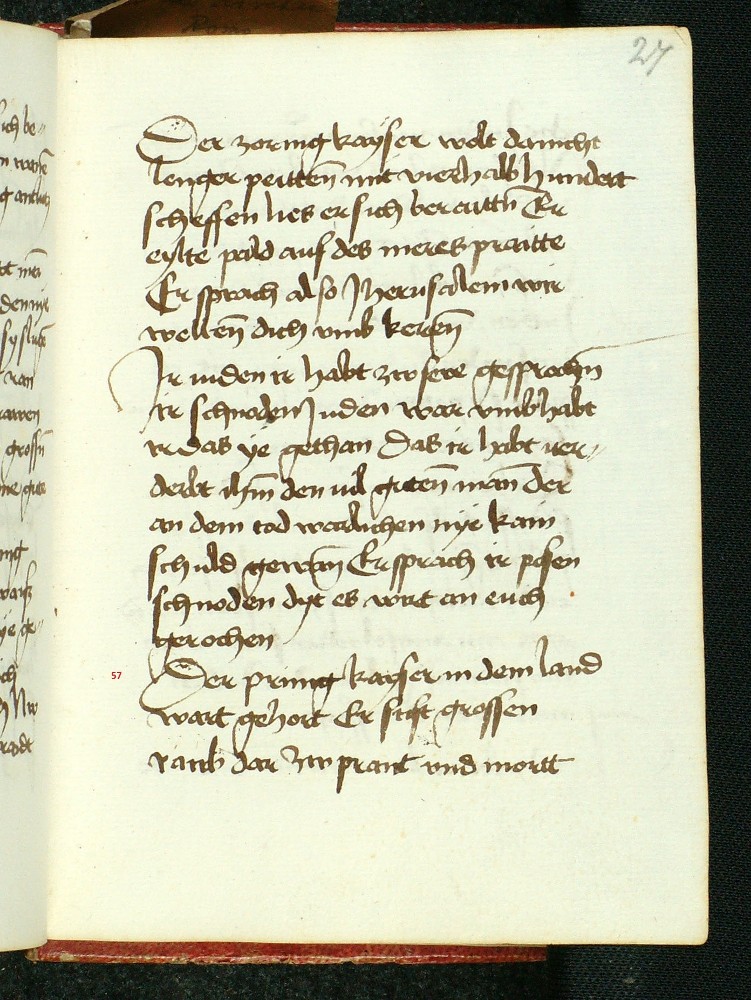 27
Der zornig kayser wolt da nicht
lenger peitten̄ mit vierhalb hundert
scheffen lies er sich beraittn̄ Er
eylte pald auf des meres praitte
Er sprach also Jherusalem wir
wellen̄ dich vmb keren̄
Ir iuden ir habt zw sere gesprochn̄
ir schnoden Juden war vmb habt
ir das ye gethan Das ir habt ver-
derbt den vil guten̄ man̄ der
an dem tod warlichen nye kain
schuld gewan̄ Er sprach ir posen
schnoden dyt es wirt an euch
gerochen
57
Der prinnig kayser in dem land
wart gehort Er stift grossen
raub dar zw prant vnd mortt